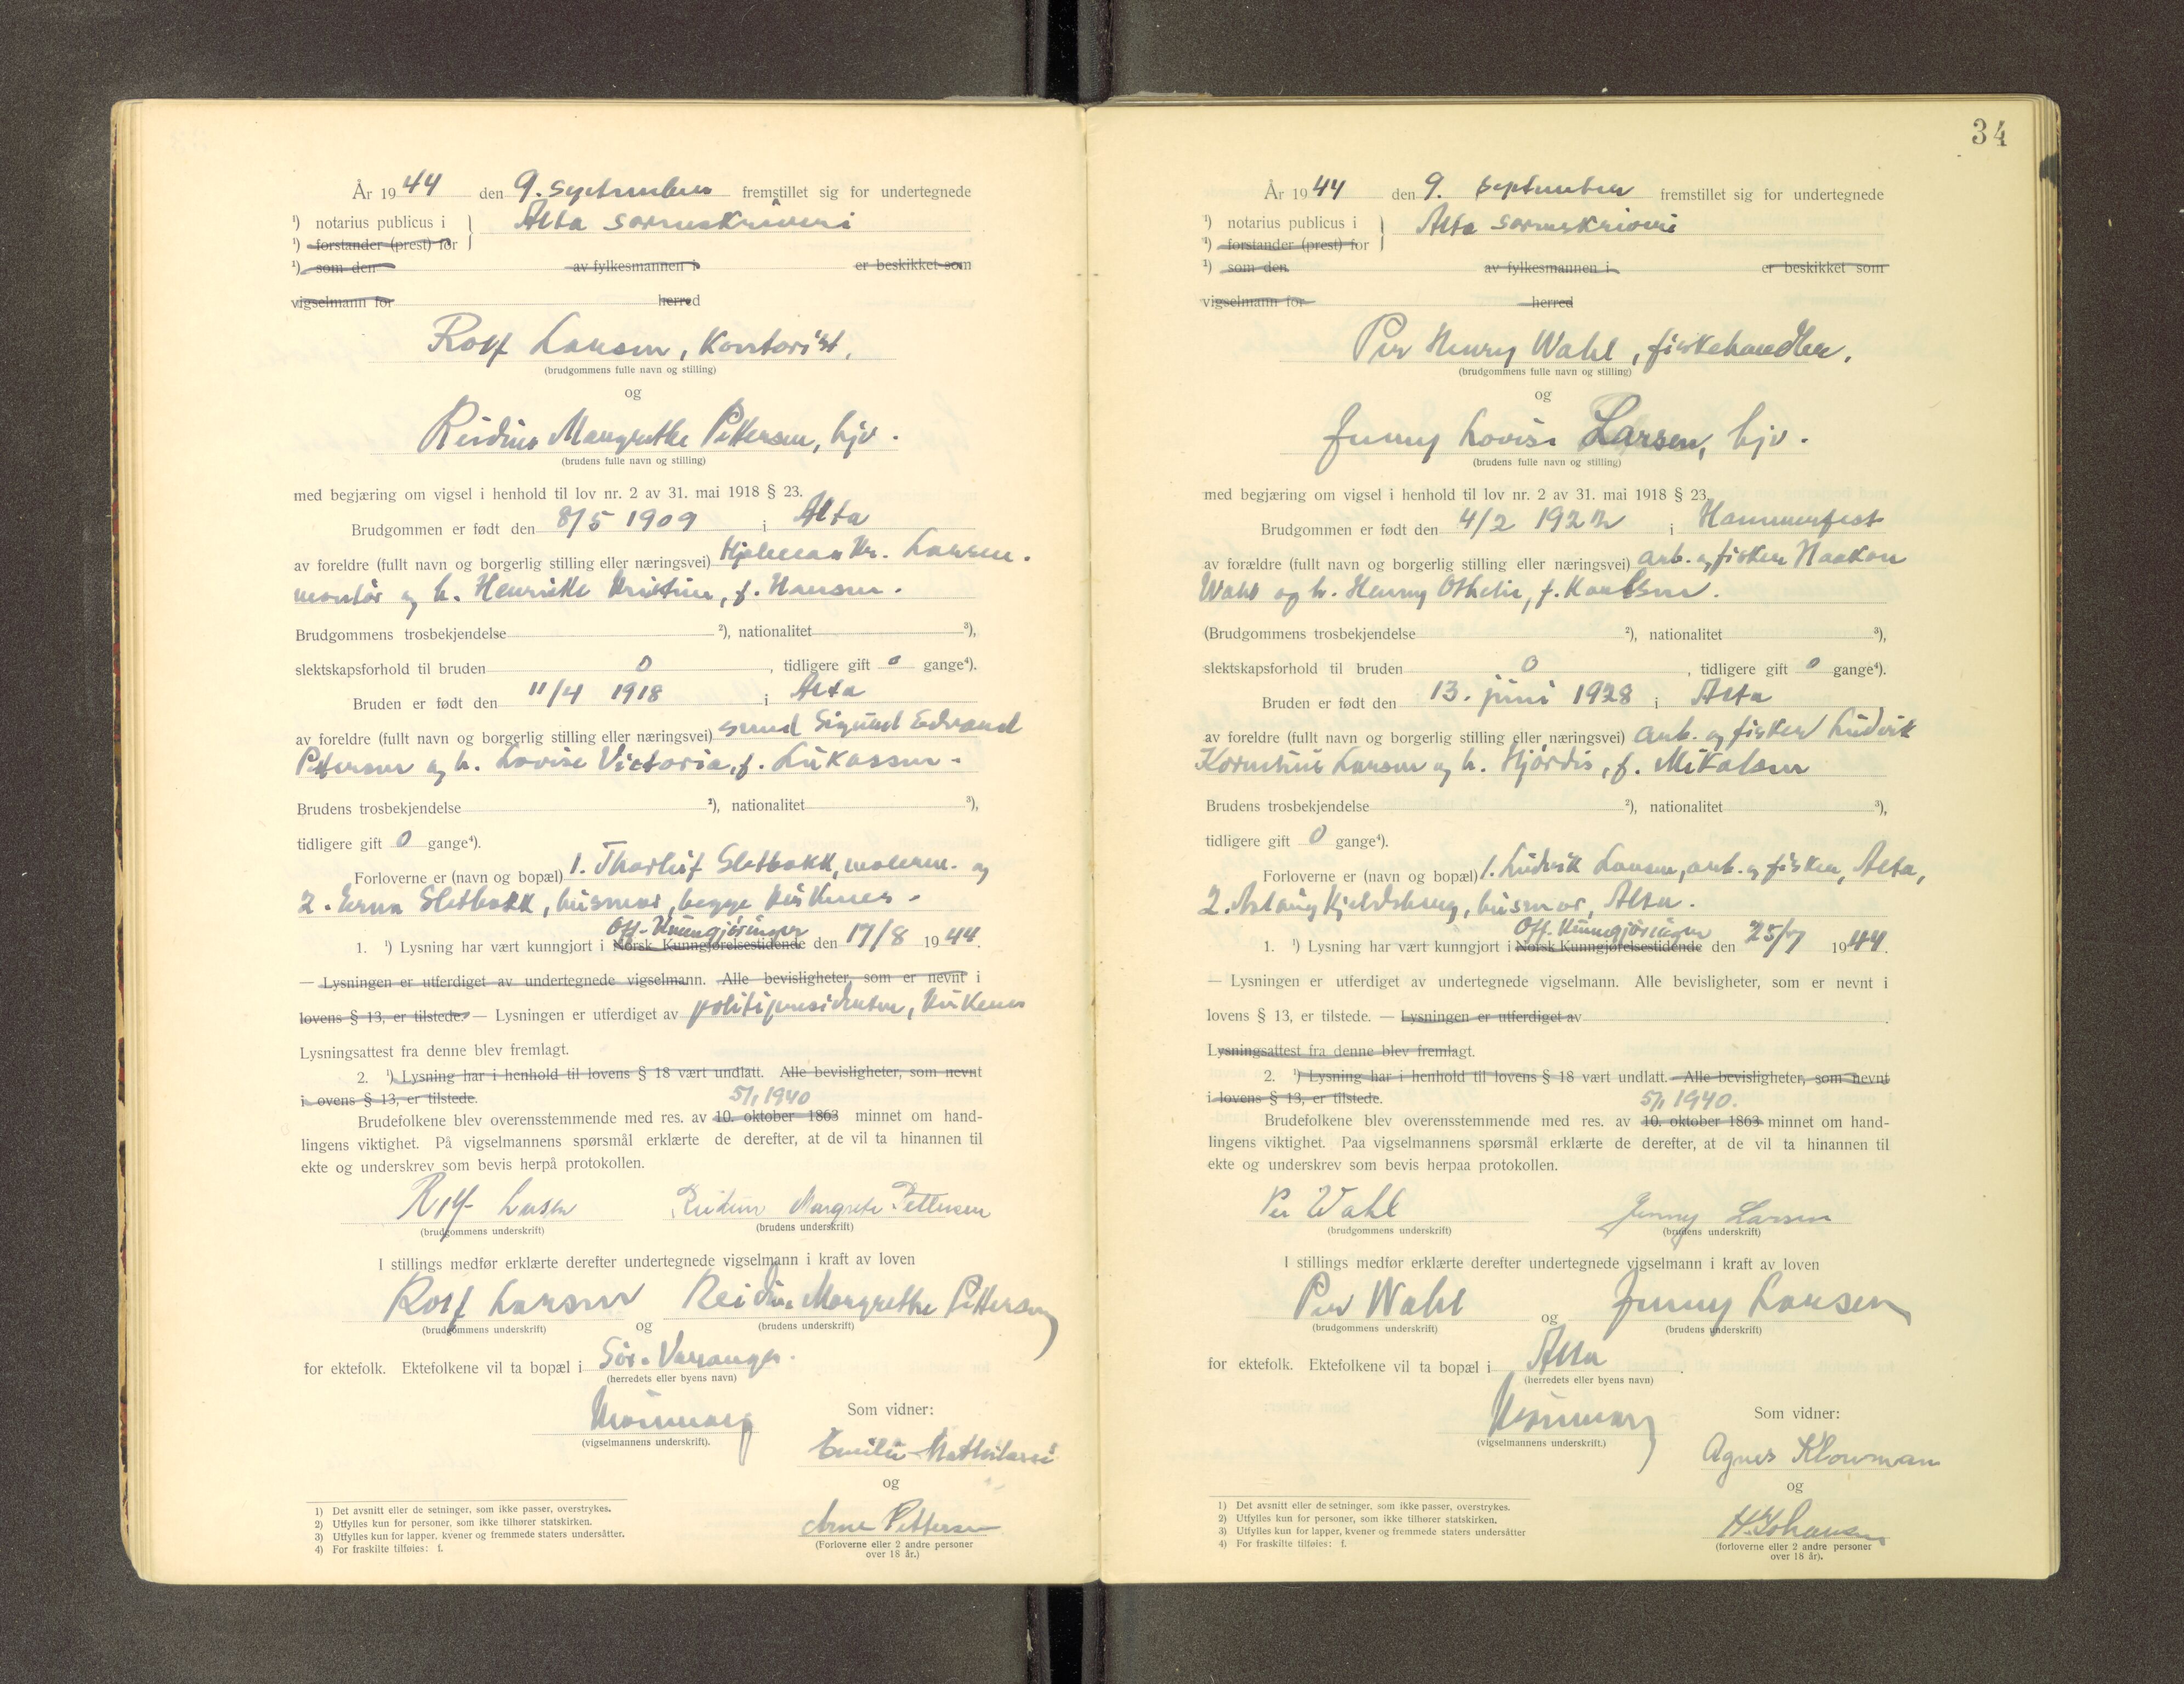 År 1944 den 9. September fremstillet sig for undertegnede
¹) notarius publicus i } Alta sorenskriveri
¹) forstander (prest) for
¹) som den av fylkesmannen i er beskikket som
vigselmann for herred
Rolf Larsen, kontorist.
(brudgommens fulle navn og stilling)
og
Reidun Margrethe Pettersen, hjv.
(brudens fulle navn og stilling)
med begjæring om vigsel i henhold til lov nr. 2 av 31. mai 1918 § 23.
Brudgommen er født den 8/5 1909 i Alta
av foreldre (fullt navn og borgerlig stilling eller næringsvei) Hjalmar Kr. Larsen.
montør og h. Henrikke Kristine, f. Hansen.
Brudgommens trosbekjendelse ²), nationalitet ³),
slektskapsforhold til bruden 0, tidligere gift 0 gange⁴).
Bruden er født den 11/4 1918 i Alta
av foreldre (fullt navn og borgerlig stilling eller næringsvei) smed Sigurd Edvard
Pettersen og h. Lovise Victoria, f. Lukassen.
Brudens trosbekjendelse ²), nationalitet ³),
tidligere gift 0 gange⁴).
Forloverne er (navn og bopæl) 1. Thorleif Sletbakk, malerm. og
2. Erna Sletbakk, husmor, begge Kirkenes.
Off. Kunngjøringer
1. ¹) Lysning har vært kunngjort i Norsk Kunngjørelsestidende den 17/8 1944.
— Lysningen er utferdiget av undertegnede vigselmann. Alle bevisligheter, som er nevnt i
lovens § 13, er tilstede. — Lysningen er utferdiget av politipresidenten, Kirkenes
Lysningsattest fra denne blev fremlagt.
2. ¹) Lysning har i henhold til lovens § 18 vært undlatt. Alle bevisligheter, som nevnt
i ovens § 13, er tilstede.
5/1 1940
Brudefolkene blev overensstemmende med res. av 10. oktober 1863 minnet om hand-
lingens viktighet. På vigselmannens spørsmål erklærte de derefter, at de vil ta hinannen til
ekte og underskrev som bevis herpå protokollen.
Rolf Larsen Reidun Margrete Pettersen
(brudgommens underskrift) (brudens underskrift)
I stillings medfør erklærte derefter undertegnede vigselmann i kraft av loven
Rolf Larsen og Reidun Margrethe Pettersen
(brudgommens underskrift) (brudens underskrift)
for ektefolk. Ektefolkene vil ta bopæl i Sør-Varanger.
(herredets eller byens navn)
(vigselmannens underskrift).
Som vidner:
Emilie
og
Arne Pettersen
(Forloverne eller 2 andre personer
over 18 år.)
1) Det avsnitt eller de setninger, som ikke passer, overstrykes.
2) Utfylles kun for personer, som ikke tilhører statskirken.
3) Utfylles kun for lapper, kvener og fremmede staters undersåtter.
4) For fraskilte tilføies: f.
34
År 1944 den 9. September fremstillet sig for undertegnede
¹) notarius publicus i } Alta sorenskriveri
¹) forstander (prest) for
¹) som den av fylkesmannen i er beskikket som
vigselmann for herred
Per Henry Wahl, fiskehandler.
(brudgommens fulle navn og stilling)
og
Jenny Lovise Larsen, hjv.
(brudens fulle navn og stilling)
med begjæring om vigsel i henhold til lov nr. 2 av 31. mai 1918 § 23.
Brudgommen er født den 4/2 i Hammerfest
av forældre (fullt navn og borgerlig stilling eller næringsvei) arb. og fisker Haakon
Wahl og h. Henny Othelie, f. Karlsen.
(Brudgommens trosbekjendelse ²), nationalitet ³),
slektskapsforhold til bruden 0, tidligere gift 0 gange⁴).
Bruden er født den 13. juni 1928 i Alta
av foreldre (fullt navn og borgerlig stilling eller næringsvei) arb. og fisker Ludvik
Kornelius Larsen og h. Hjørdis, f. Mikalsen
Brudens trosbekjendelse ²), nationalitet ³),
tidligere gift 0 gange⁴).
Forloverne er (navn og bopæl) 1. Ludvik Larsen, arb. og fisker, Alta,
2. Aslaug Kjeldsberg, husmor, Alta.
Off. Kunngjøringer
1. ¹) Lysning har vært kunngjort i Norsk Kunngjørelsestidende den 25/7 1944.
— Lysningen er utferdiget av undertegnede vigselmann. Alle bevisligheter, som er nevnt i
lovens § 13, er tilstede. — Lysningen er utferdiget av
Lysningsattest fra denne blev fremlagt.
2. ¹) Lysning har i henhold til lovens § 18 vært undlatt. Alle bevisligheter, som nevnt
i lovens § 13, er tilstede.
5/1 1940.
Brudefolkene blev overensstemmende med res. av 10. oktober 1863 minnet om hand-
lingens viktighet. Paa vigselmannens spørsmål erklærte de derefter, at de vil ta hinannen til
ekte og underskrev som bevis herpaa protokollen.
Per Wahl Jenny Larsen
(brudgommens underskrift) (brudens underskrift)
I stillings medfør erklærte derefter undertegnede vigselmann i kraft av loven
Per Wahl og Jenny Larsen
(brudgommens underskrift) (brudens underskrift)
for ektefolk. Ektefolkene vil ta bopæl i Alta.
(herredets eller byens navn)
(vigselmannens underskrift.)
Som vidner:
Agnes Klowman
og
H. Johansen
(forloverne eller 2 andre personer
over 18 år).
1) Det avsnitt eller de setninger, som ikke passer, overstrykes.
2) Utfylles kun for personer, som ikke tilhører statskirken.
3) Utfylles kun for lapper, kvener og fremmede staters undersåtter
4) For fraskilte tilføies: f.